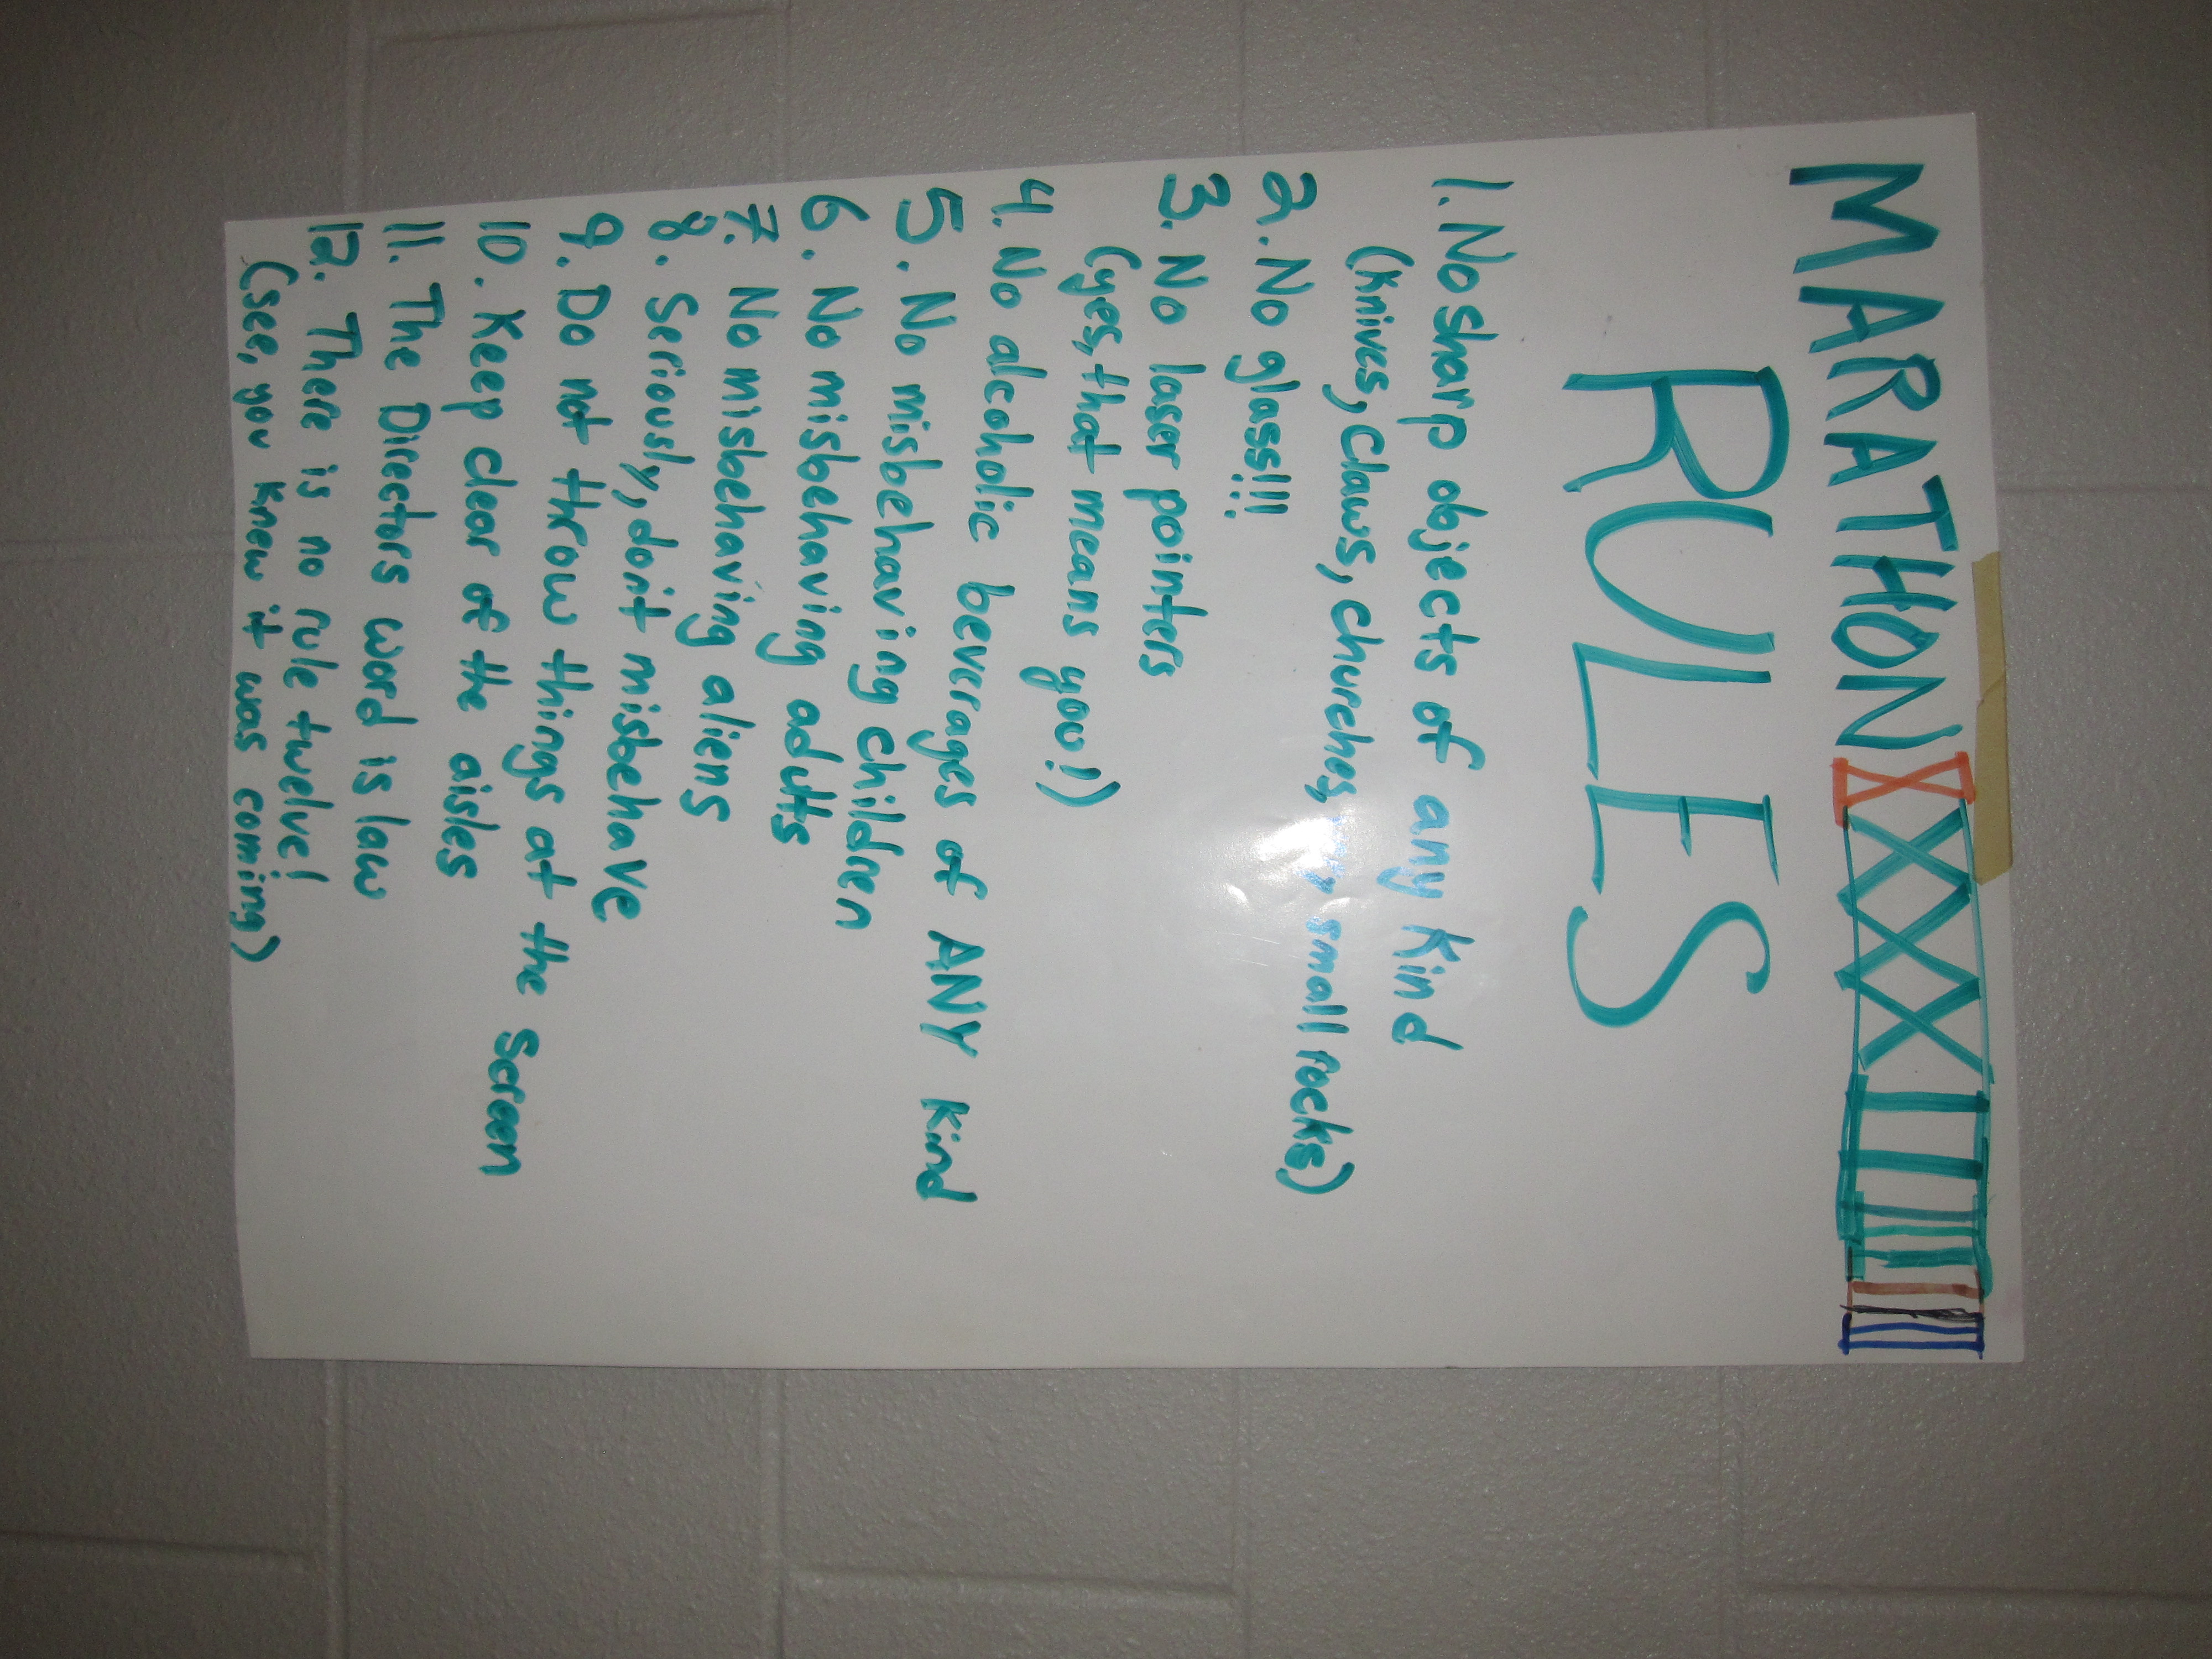 MARATHON
RULES
1. No sharp objects of any kind
(knives, claws, churches, small rocks)
2. No glass!!!
3. No laser pointers
(yes, that means you!)
4. No alcoholic beverages of ANY kind
5. No misbehaving children
6. No misbehaving adults
7. No misbehaving aliens
8. Seriously, don't misbehave
9. Do not throw things at the screen
10. Keep clear of the aisles
11. The Directors word is law
12. There is no rule twelve!
(see, you knew it was coming)